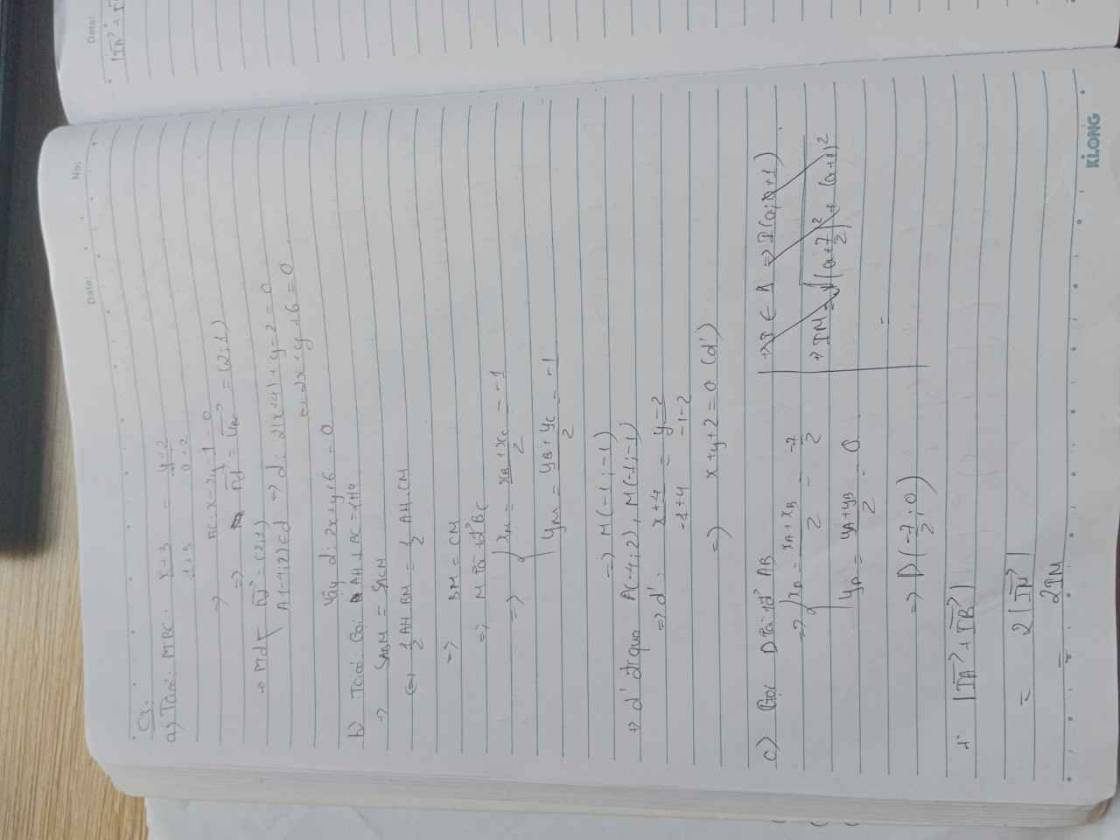 Date:
No:
C3:
a) Ta có: PTBC: x+3/1+3 = y+2/0+2
=> BC: x-2y-1=0
=> n⃗d = u⃗BC = (2;1)
A(-4;2) ∈ d => d: 2(x+4)+y-2=0
<=> 2x+y+6=0
Vậy d: 2x+y+6=0
b) Ta có: Gọi AH ⊥ BC = {H}
=> S_ABM = S_ACM
<=> 1/2 AH.BM = 1/2 AH.CM
=> BM = CM
=> M là tđ BC
=> { x_M = (x_B + x_C)/2 = -1
y_M = (y_B + y_C)/2 = -1
=> M(-1;-1)
+> d' đi qua A(-4;2), M(-1;-1)
=> d': x+4/-1+4 = y-2/-1-2
=> x+y+2=0 (d')
c) Gọi D là tđ AB
=> { x_D = (x_A + x_B)/2 = -7/2
y_D = (y_A + y_B)/2 = 0
=> D(-7/2; 0)
+ |IA⃗ + IB⃗|
= 2|IM⃗|
= 2IM
+> I ∈ Δ => I(a; a+1)
+> IM = √((a+7/2)² + (a+1)²
=
KLONG
Date: